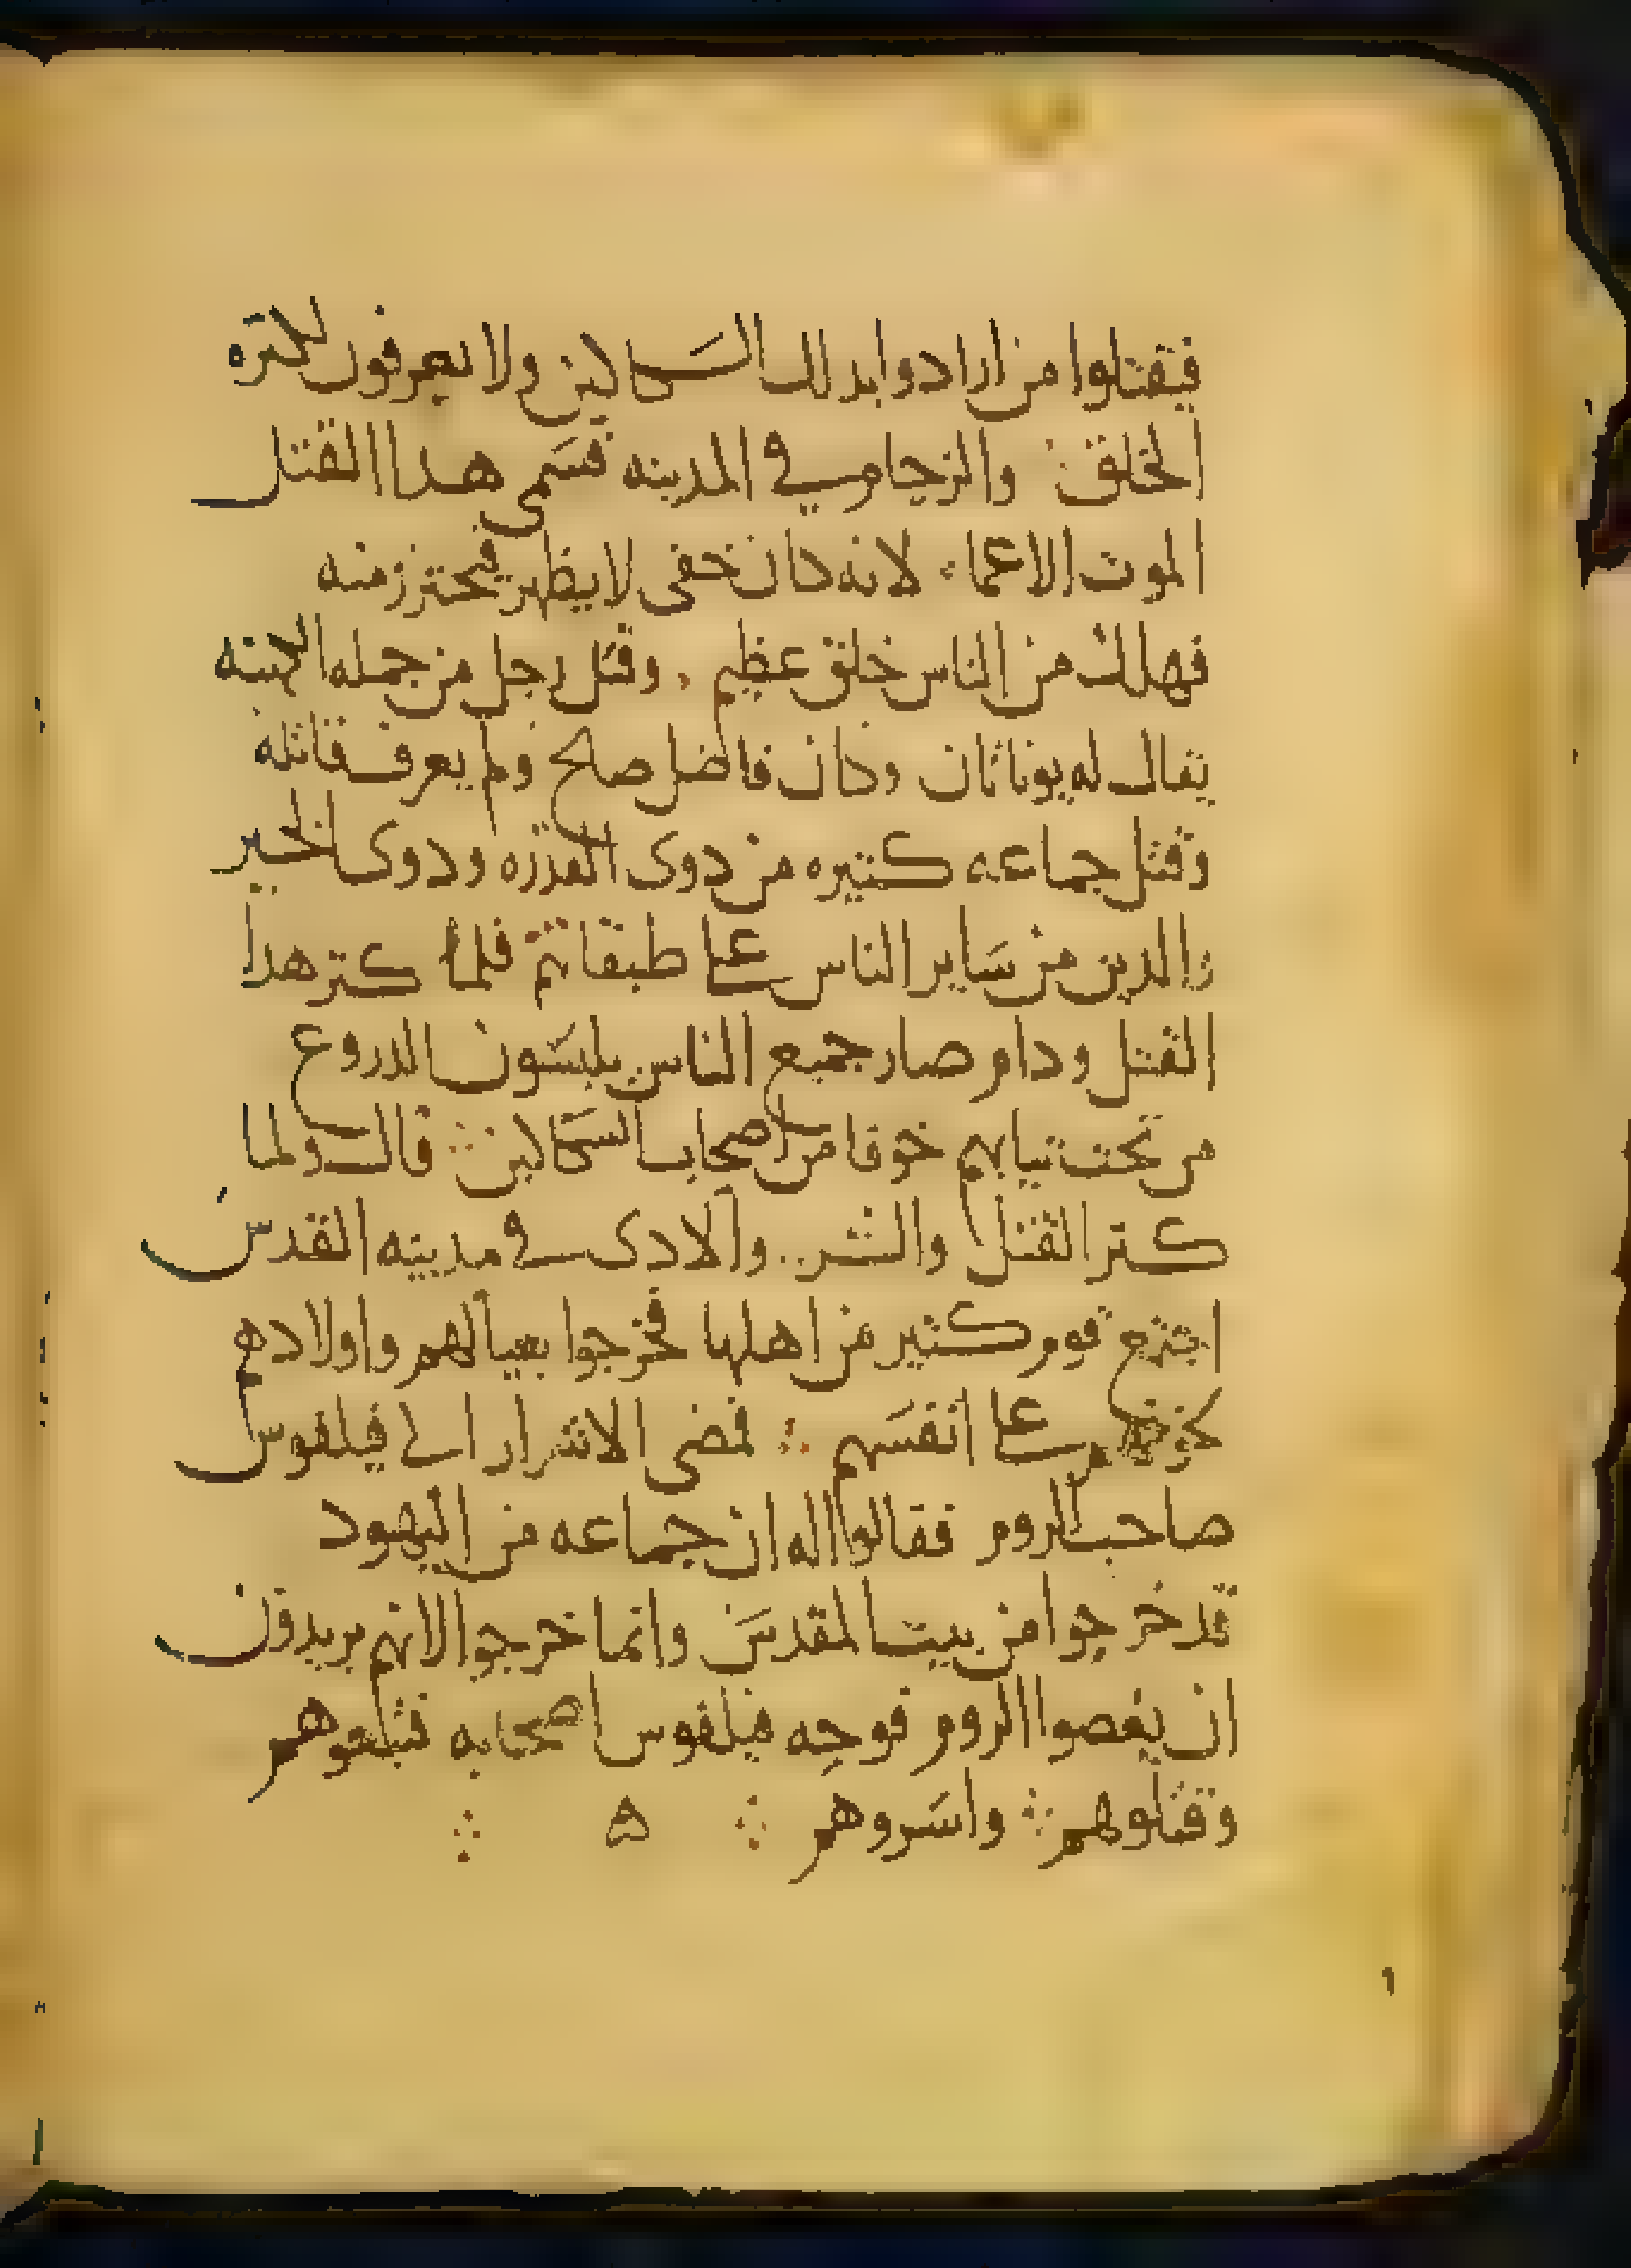 فيقتلوا من ارادوا بدلك السكاكين ولا يعرفون لكتره
الخلق والزحام في المدينه فسمى هدا القتل
الموت الاعما لانه كان خفى لا يظهر فيحترز منه
فهلك من الناس خلق عظيم . وقتل رجل من جمله الكهنه
يقال له يوناثان وكان فاضل صالح ولم يعرف قاتله
وقتل جماعه كتيره من دوى القدره ودوى الخير
والدين من ساير الناس على طبقاتهم فلما كتر هدا
القتل ودام صار جميع الناس يلبسون الدروع
من تحت تيابهم خوفا من اصحاب السكاكين ⁘ قال ولما
كتر القتل والشر .. والادى في مدينه القدس
اجتمع قوم كتير من اهلها فخرجوا بعيالهم واولادهم
لخوفهم على انفسهم ⁘ فمضى الاشرار الى فيلقوس
صاحب الروم فقالوا له ان جماعه من اليهود
قد خرجوا من بيت المقدس وانما خرجوا لانهم يريدون
ان يعصوا الروم فوجه فيلقوس اصحابه فتبعوهم
وقتلوهم ⁘ واسروهم ⁘ ⁘